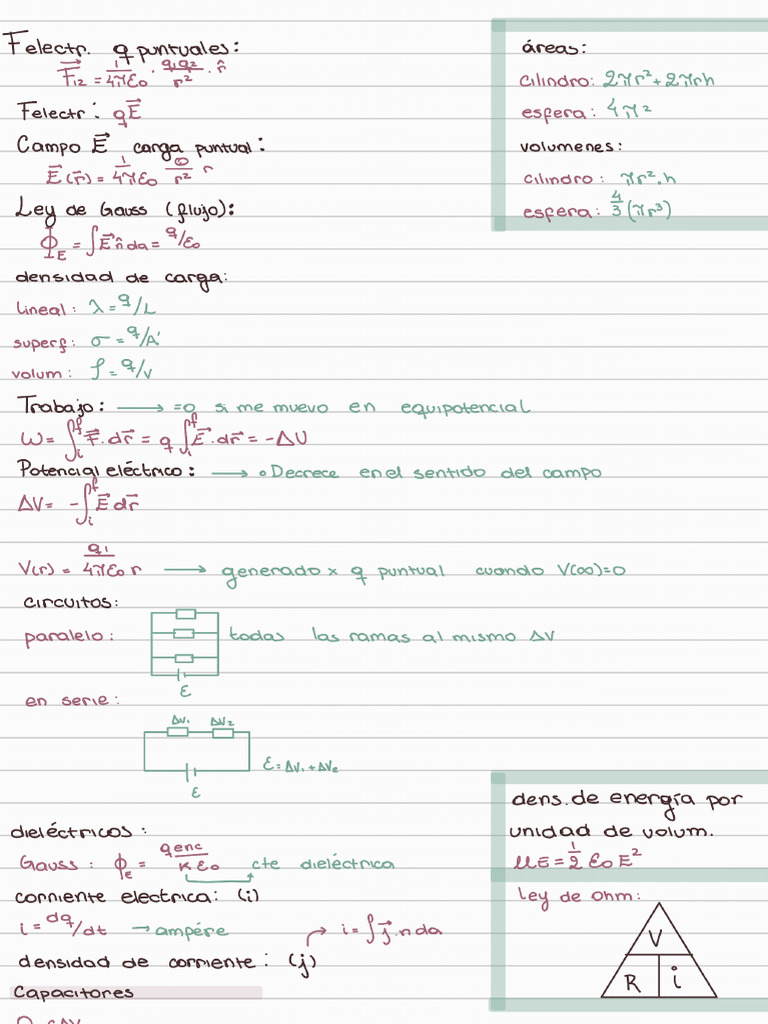 Felectr. q puntuales:
F₁₂ = 1/4πε₀ · q₁q₂/r² · r̂
Felectr: qE⃗
Campo E⃗ carga puntual:
E⃗(r⃗) = 1/4πε₀ Q/r² r
Ley de Gauss (flujo):
Φ_E = ∫E⃗ n̂ da = q/ε₀
densidad de carga:
lineal: λ = q/L
superf: σ = q/A
volum: ρ = q/v
Trabajo: → =0 si me muevo en equipotencial
W = ∫ᵢᶠ F⃗.dr⃗ = q ∫ᵢᶠ E⃗.dr⃗ = -ΔU
Potencial eléctrico: → ∘ Decrece en el sentido del campo
ΔV = -∫ᵢᶠ E⃗ dr⃗
V(r) = q₁/4πε₀ r → generado x q puntual cuando V(∞)=0
circuitos:
paralelo: todas las ramas al mismo ΔV
ε
en serie:
ΔV₁ ΔV₂
ε = ΔV₁ + ΔV₂
ε
dieléctricos:
Gauss: Φ_E = qenc/κε₀ cte dieléctrica
corriente electrica: (i)
i = dq/dt → ampére
densidad de corriente: (j) → i = ∫j⃗.n da
Capacitores
áreas:
cilindro: 2πr² + 2πrh
esfera: 4π²
volumenes:
cilindro: πr².h
esfera: 4/3 (πr³)
dens. de energía por
unidad de volum.
μE = 1/2 ε₀E²
ley de Ohm:
V
R i